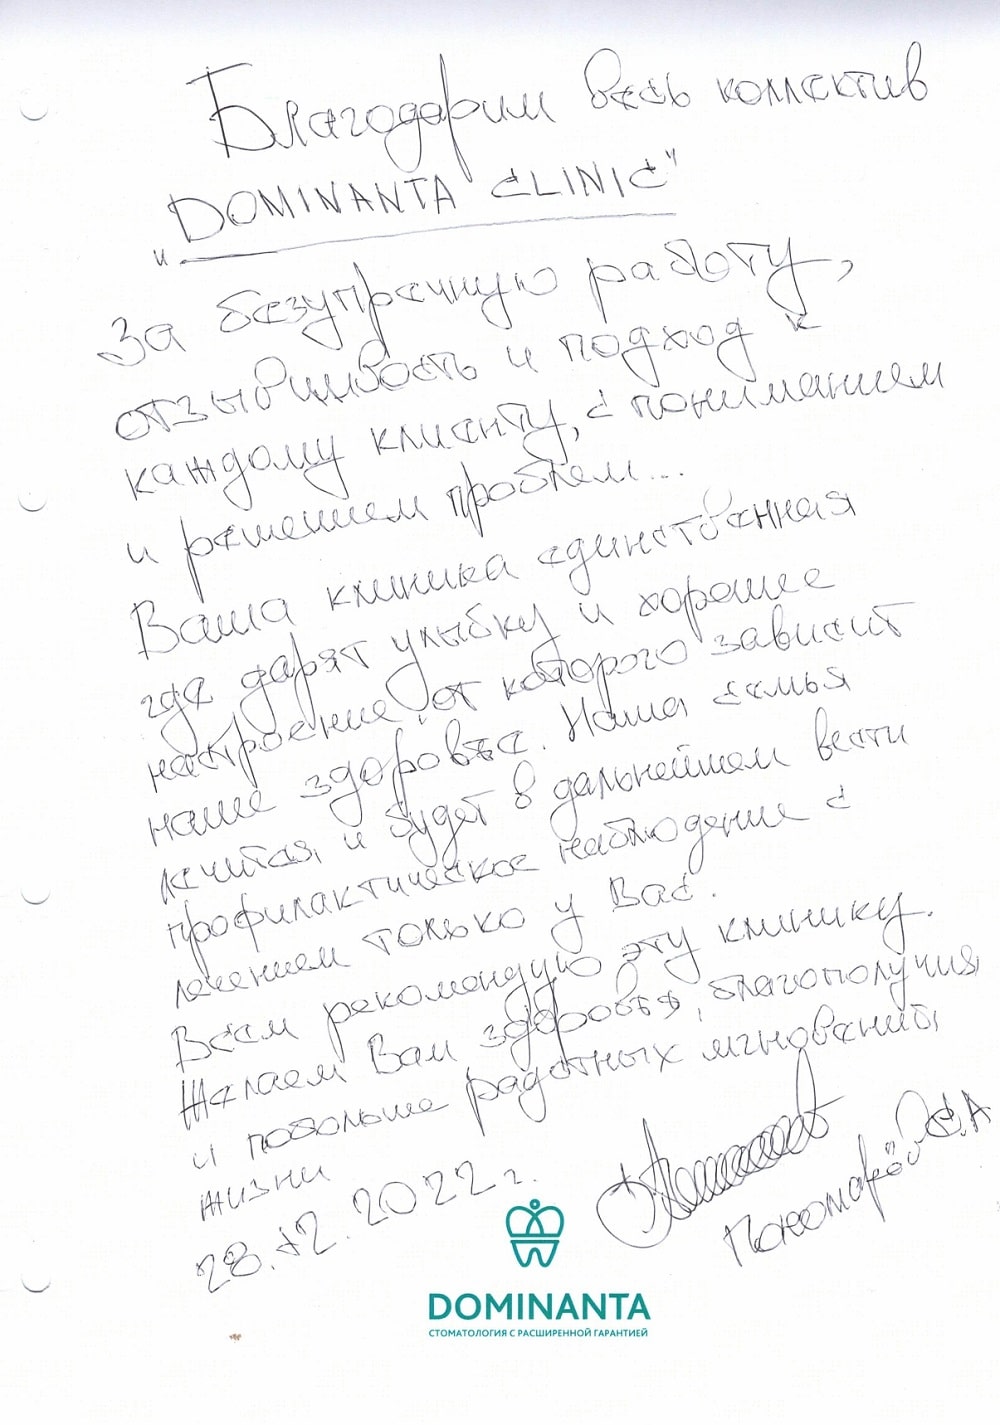 Благодарим весь коллектив
"DOMINANTA CLINIC"
За безупречную работу,
отзывчивость и подход к
каждому клиенту, с пониманием
и решением проблем...
Ваша клиника единственная
где дарят улыбку и хорошее
настроение, от которого зависит
наше здоровье. Наша семья
лечится, и будет в дальнейшем вести
профилактическое наблюдение с
лечением только у Вас.
Всем рекомендую эту клинику.
Желаем Вам здоровья, благополучия,
и побольше радостных мгновений,
жизни
28.12.2022 г.
Пономарёв С.А
DOMINANTA
СТОМАТОЛОГИЯ С РАСШИРЕННОЙ ГАРАНТИЕЙ